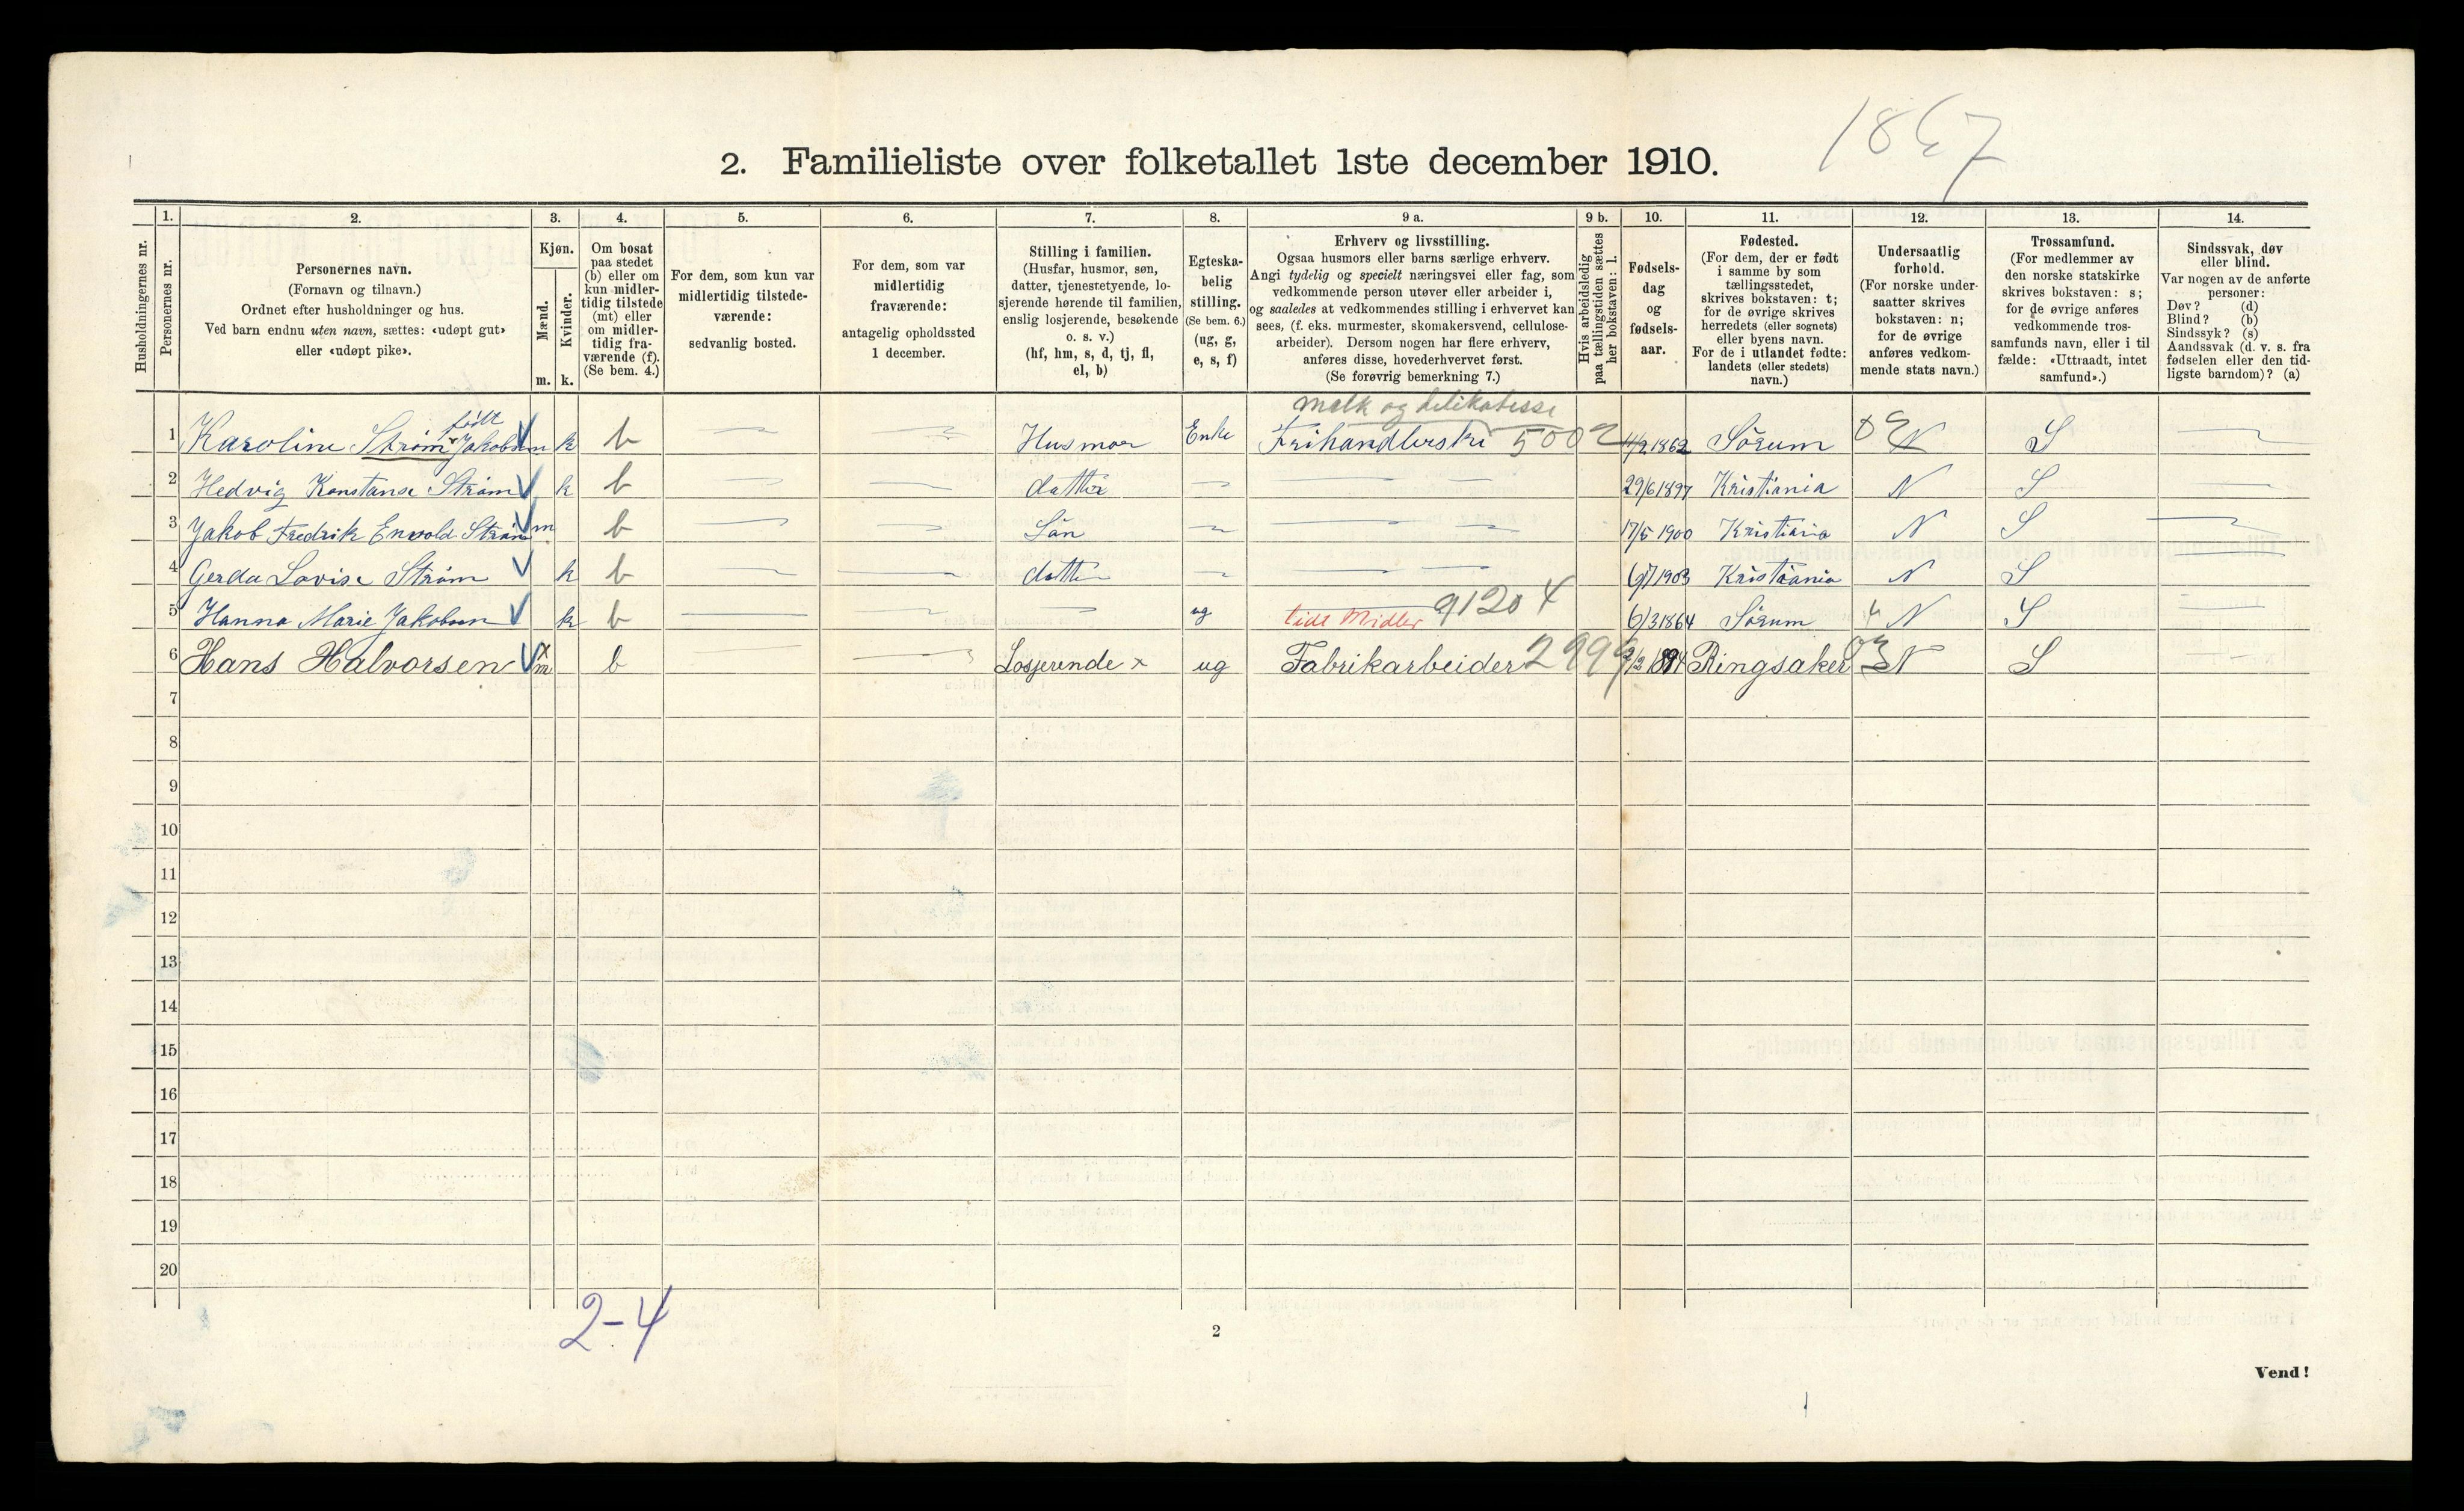 1867
2. Familieliste over folketallet 1ste december 1910.
1. 2. 3. 4. 5. 6. 7. 8. 9 a. 9 b. 10. 11. 12. 13. 14.
Husholdningernes nr.
Personernes nr.
Personernes navn.
(Fornavn og tilnavn.)
Ordnet efter husholdninger og hus.
Ved barn endnu uten navn, sættes: «udøpt gut»
eller «udøpt pike».
Kjøn.
Mænd.
Kvinder.
m. k.
Om bosat
paa stedet
(b) eller om
kun midler-
tidig tilstede
(mt) eller
om midler-
tidig fra-
værende (f).
(Se bem. 4.)
For dem, som kun var
midlertidig tilstede-
værende:
sedvanlig bosted.
For dem, som var
midlertidig
fraværende:
antagelig opholdssted
1 december.
Stilling i familien.
(Husfar, husmor, søn,
datter, tjenestetyende, lo-
sjerende hørende til familien,
enslig losjerende, besøkende
o. s. v.)
(hf, hm, s, d, tj, fl,
el, b)
Egteska-
belig
stilling.
(Se bem. 6.)
(ug, g,
e, s, f)
Erhverv og livsstilling.
Ogsaa husmors eller barns særlige erhverv.
Angi tydelig og specielt næringsvei eller fag, som
vedkommende person utøver eller arbeider i,
og saaledes at vedkommendes stilling i erhvervet kan
sees, (f. eks. murmester, skomakersvend, cellulose-
arbeider). Dersom nogen har flere erhverv,
anføres disse, hovederhvervet først.
(Se forøvrig bemerkning 7.)
Hvis arbeidsledig
paa tællingstiden sættes
her bokstaven: l.
Fødsels-
dag
og
fødsels-
aar.
Fødested.
(For dem, der er født
i samme by som
tællingsstedet,
skrives bokstaven: t;
for de øvrige skrives
herredets (eller sognets)
eller byens navn.
For de i utlandet fødte:
landets (eller stedets)
navn.)
Undersaatlig
forhold.
(For norske under-
saatter skrives
bokstaven: n;
for de øvrige
anføres vedkom-
mende stats navn.)
Trossamfund.
(For medlemmer av
den norske statskirke
skrives bokstaven: s;
for de øvrige anføres
vedkommende tros-
samfunds navn, eller i til
fælde: «Uttraadt, intet
samfund».)
Sindssvak, døv
eller blind.
Var nogen av de anførte
personer:
Døv? (d)
Blind? (b)
Sindssyk? (s)
Aandssvak (d. v. s. fra
fødselen eller den tid-
ligste barndom)? (a)
født melk og delikatesse
1 Karoline Strøm Jakobsen k b Husmor Enke Frihandlerske 5002 11/2 1862 Sørum N S
2 Hedvig Konstanse Strøm k b datter 29/6 1897 Kristiania N S
3 Jakob Fredrik Envold Strøm m b Søn 17/5 1900 Kristiania N S
4 Gerda Lovise Strøm k b datter 6/7 1903 Kristiania N S
5 Hanna Marie Jakobsen k b ug lidt Midler 91204 6/3 1864 Sørum N S
6 Hans Halvorsen x m b Losjerende x ug Fabrikarbeider 2999 Ringsaker 03 N S
7
8
9
10
11
12
13
14
15
16
17
18
19
20
2-4
2
Vend!